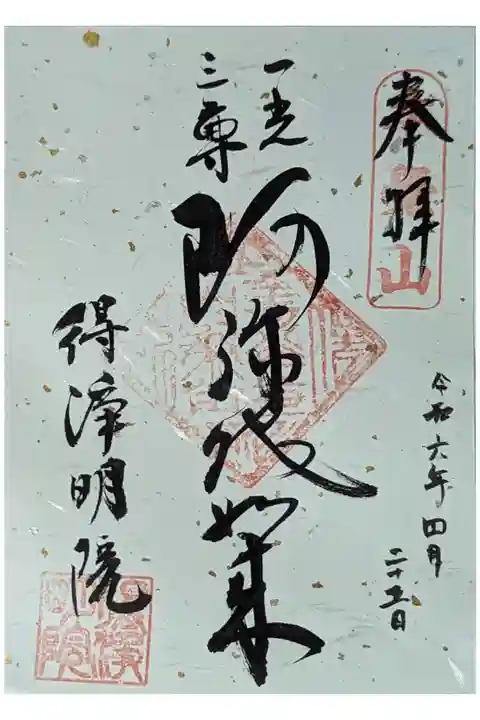 奉拝
令和六年四月
二十五日
一光
三尊
阿弥陀如来
得浄明院